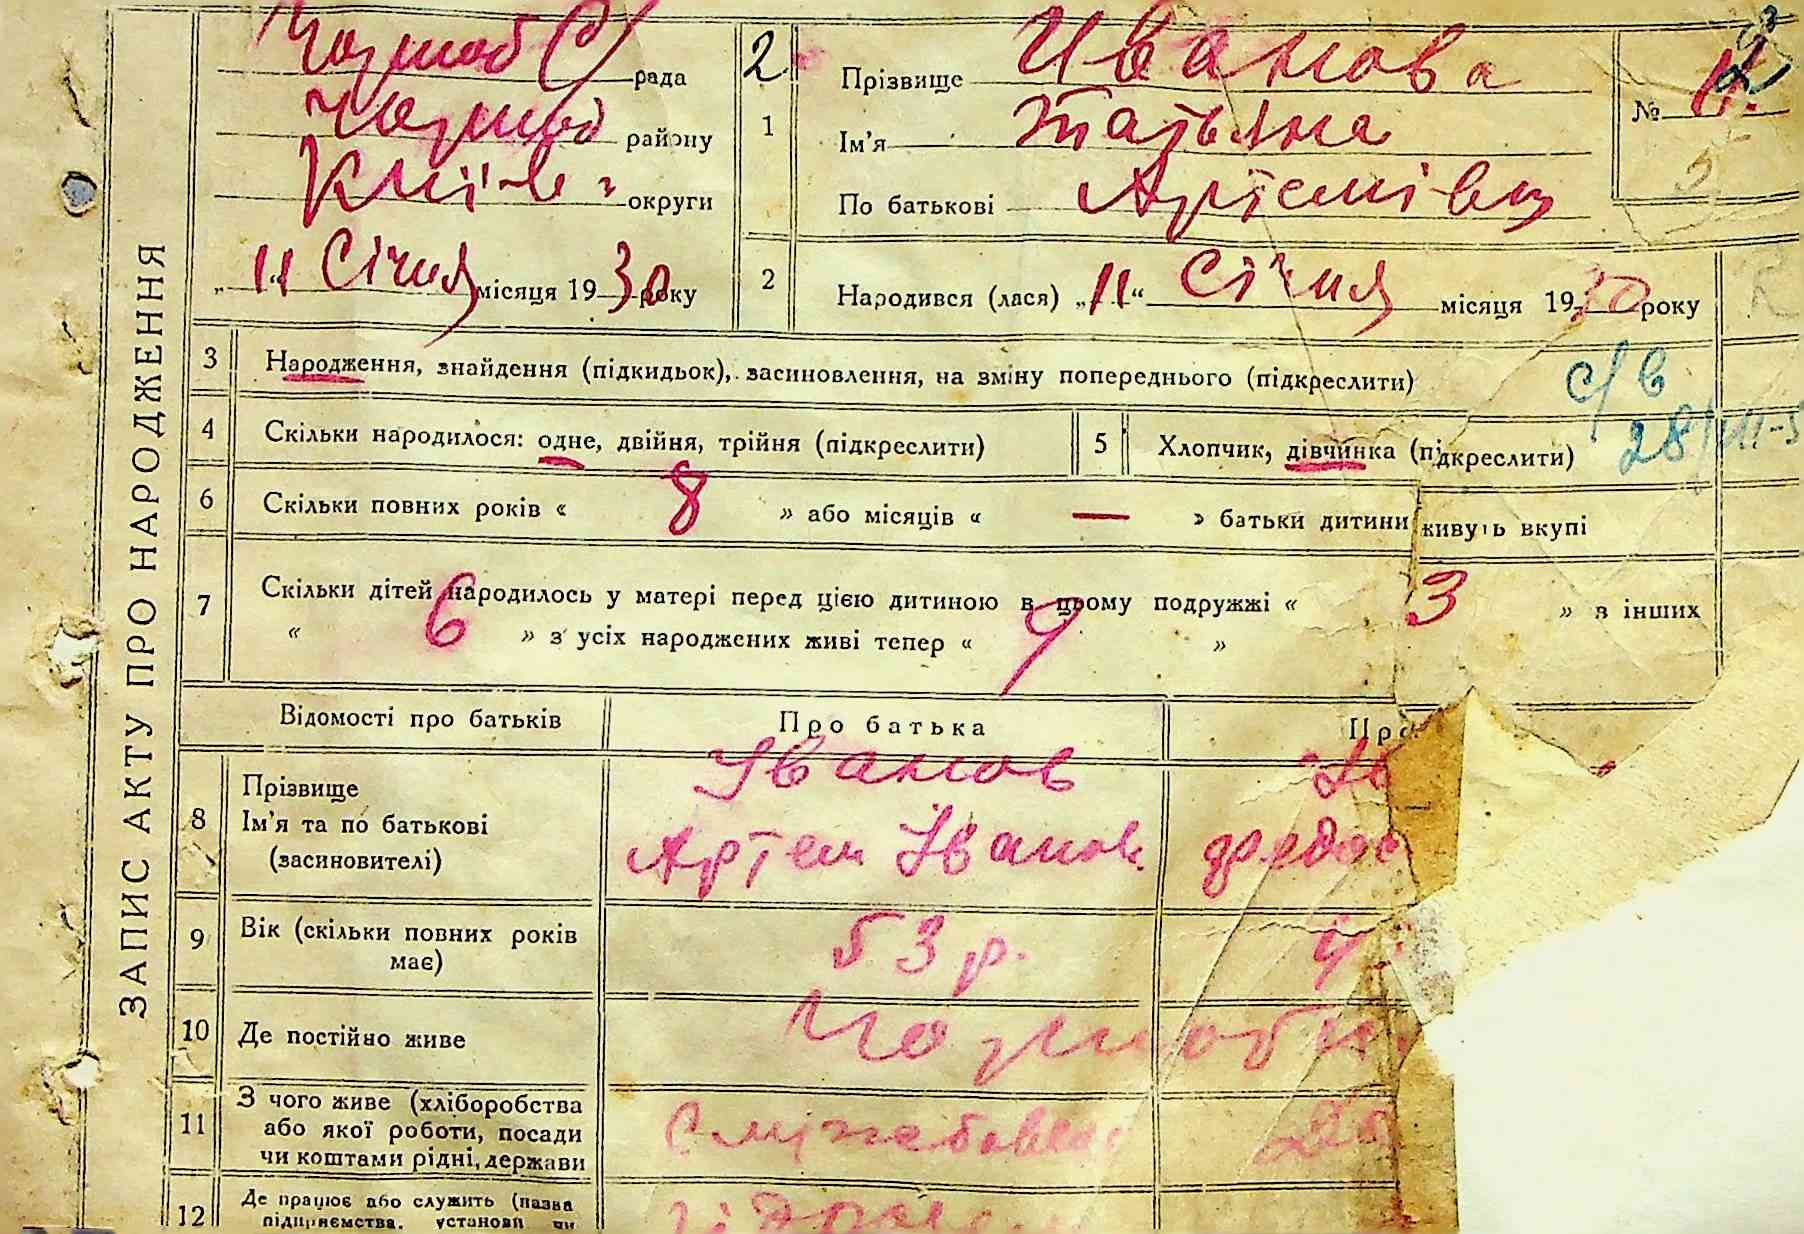 ЗАПИС АКТУ ПРО НАРОДЖЕННЯ
рада
району
Київ- округи
„11“ Січня місяця 1930 року
2
1
Прізвище Иванова
Ім'я Татьяна
По батькові Артемівн
№
2
Народився (лася) „11“ Січня місяця 1930 року
3 Народження, знайдення (підкидьок), засиновлення, на зміну попереднього (підкреслити)
с/в
4 Скільки народилося: одне, двійня, трійня (підкреслити)
5 Хлопчик, дівчинка (підкреслити)
28/
6 Скільки повних років « 8 » або місяців « — » батьки дитини живуть вкупі
7 Скільки дітей народилось у матері перед цією дитиною в цьому подружжі « 3 » з інших
« 6 » з усіх народжених живі тепер « 9 »
Відомості про батьків
Про батька
Про
8
Прізвище
Ім'я та по батькові
(засиновителі)
Іванов
Артем Іванов.
Ів
9 Вік (скільки повних років
має)
53 р.
4
10 Де постійно живе
11 З чого живе (хліборобства
або якої роботи, посади
чи коштами рідні, держави
12 Де працює або служить (назва
підприємства, установи чи